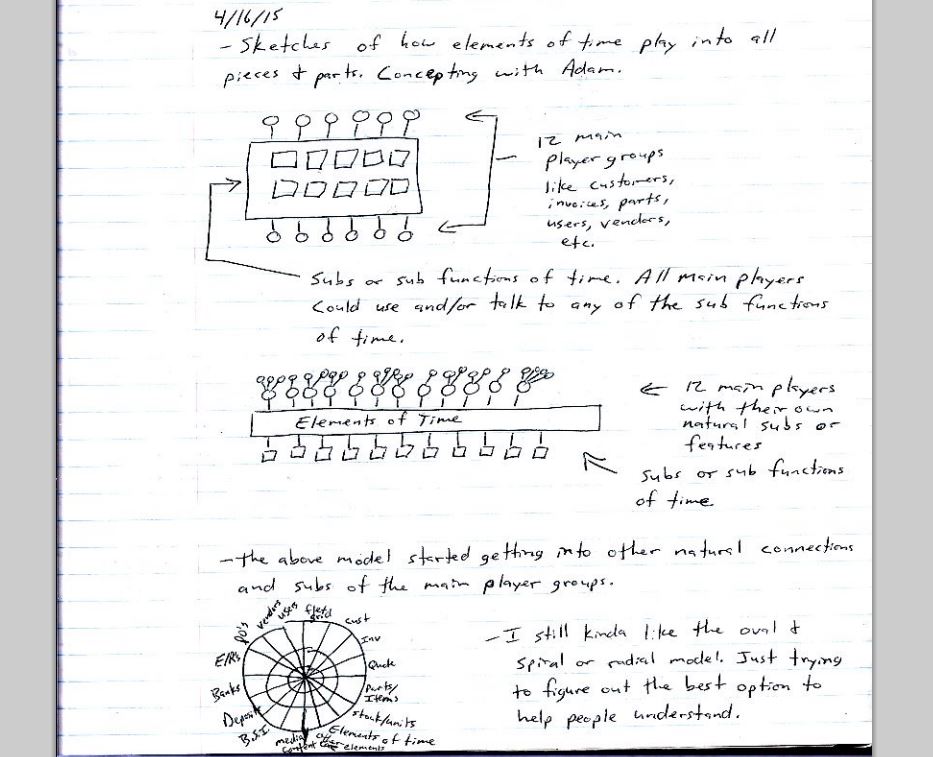 4/16/15
- Sketches of how elements of time play into all
pieces & parts. Concepting with Adam.
12 main
player groups
like customers,
invoices, parts,
users, vendors,
etc.
Subs or sub functions of time. All main players
could use and/or talk to any of the sub functions
of time.
Elements of Time
12 main players
with their own
natural subs or
features
subs or sub functions
of time
- The above model started getting into other natural connections
and subs of the main player groups.
PO's
vendors
users
cust
Inv
Quote
Parts/
Items
stock/units
Elements of time
elements
media/
content
B.S.I.
Deposits
Banks
E/R's
- I still kinda like the oval &
spiral or radial model. Just trying
to figure out the best option to
help people understand.